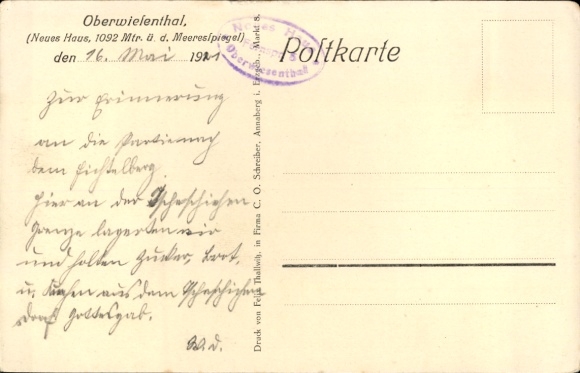 Oberwiesenthal,
(Neues Haus, 1092 Mtr. ü. d. Meeresspiegel)
den 16. Mai 1921
Neues Haus
Oberwiesenthal
Postkarte
Zur Erinnerung
an die Partie nach
dem Fichtelberg.
Hier an der Tschechischen
Grenze lagerten wir
und holten Zucker, Brot,
u. Kuchen aus dem Tschechischen
Dorf Gottesgab.
W. d.
Druck von Felix Thallwitz, in Firma C. O. Schreiber, Annaberg i. Erzgeb., Markt 8.